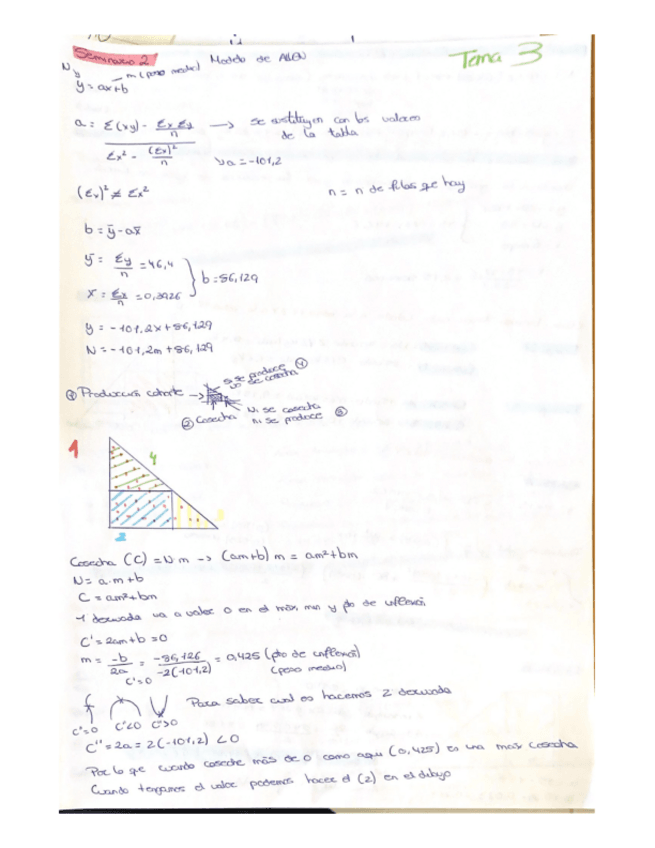 Seminario 2 Modelo de ALLEN
Tema 3
N y m (peso medio)
y = ax+b
a = Σ(xy) - Σx Σy / n → se sustituyen con los valores de la tabla
Σx² - (Σx)² / n ↳ a = -101,2
(Σx)² ≠ Σx² n = nº de filas que hay
b = ȳ - ax̄
ȳ = Σy / n = 46,4
x̄ = Σx / n = 0,3926 } b = 86,129
y = -101,2x + 86,129
N = -101,2m + 86,129
① Produccion cohorte → Si se produce no se cosecha ④
② Cosecha Ni se cosecha ni se produce ③
1
4
2
Cosecha (C) = N·m → (am+b) m = am²+bm
N = a·m+b
C = am²+bm
1 derivada va a valer 0 en el máx, min y pto de inflexión
C' = 2am+b = 0
m = -b / 2a = -86,126 / -2(-101,2) = 0,425 (pto de inflexión)
C'=0 (peso medio)
Para saber cual es hacemos 2 derivada
C''=0 C''<0 C''>0
C'' = 2a = 2(-101,2) < 0
Por lo que cuando coseche más de 0 como aqui (0,425) es una max cosecha
Cuando tengamos el valor podemos hacer el (2) en el dibujo